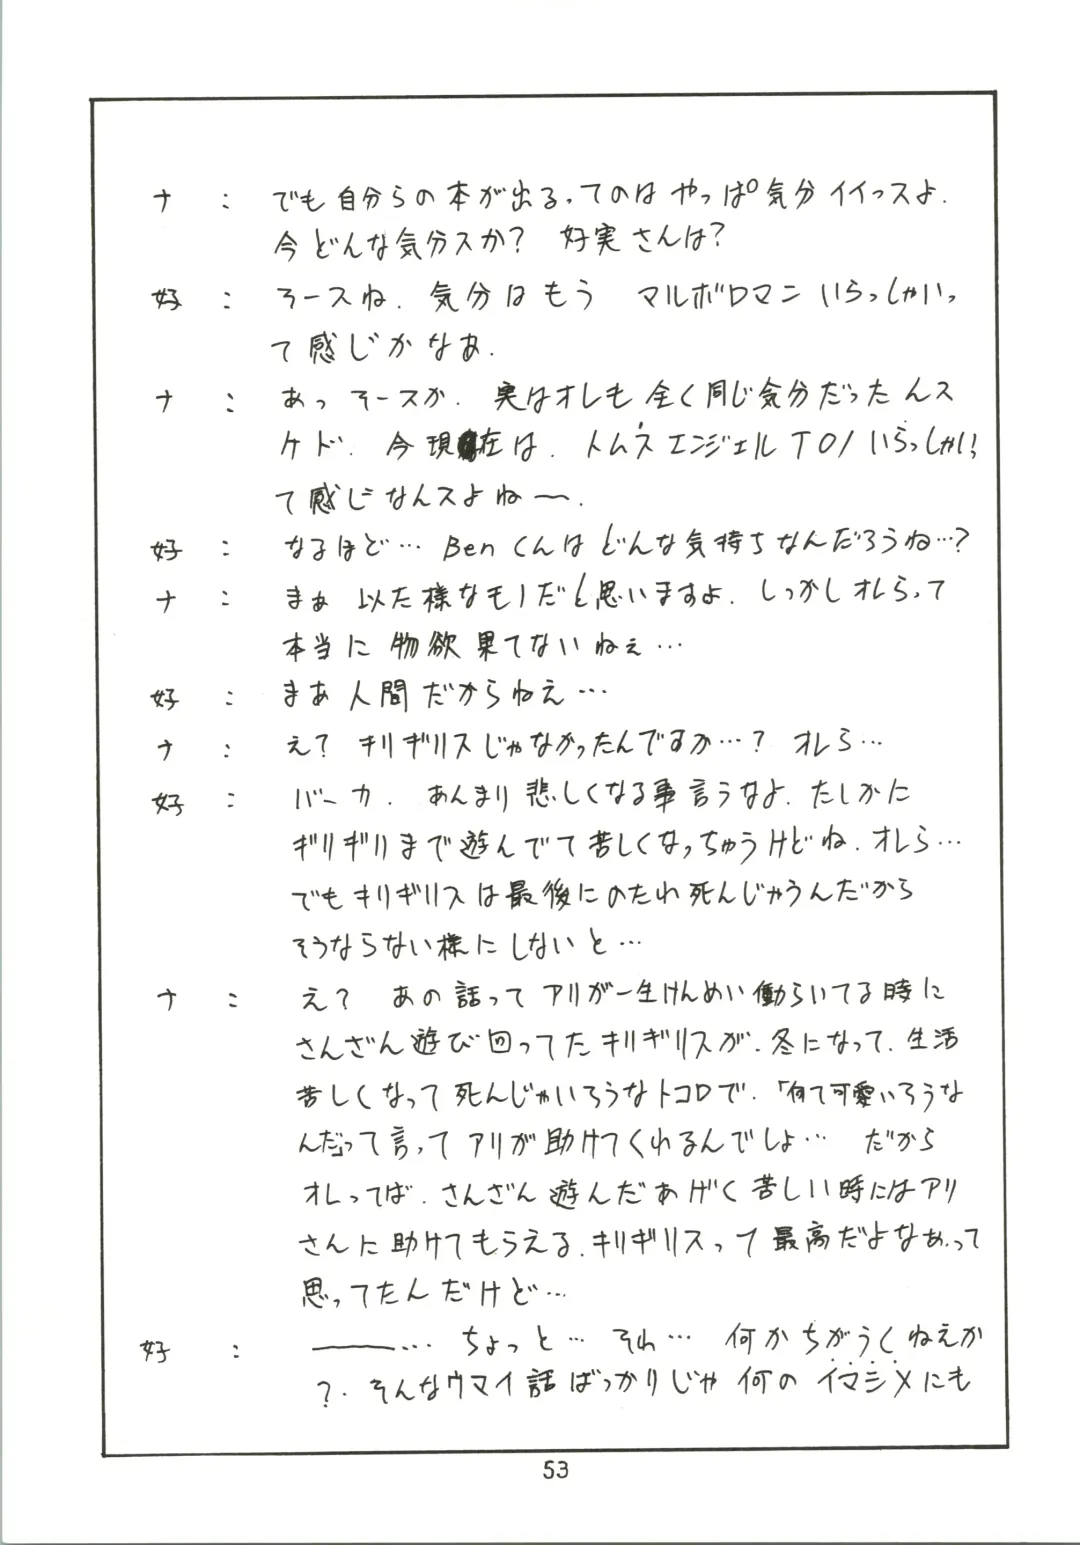 ナ : でも自分らの本が出るってのは やっぱ気分イイっスよ.
今どんな気分スか? 好実さんは?
好 : そースね. 気分はもう マルボロマン いらっしゃいっ
て感じかなあ.
ナ : あっ そースか. 実はオレも 全く同じ気分だったんス
ケド. 今現在は. トムズエンジェル T01いらっしゃいっ
て感じなんスよねー.
好 : なるほど… Benくんは どんな気持ちなんだろうね…?
ナ : まぁ 以た様なモノだと思いますよ. しっかしオレらって
本当に 物欲 果てないねぇ…
好 : まあ人間だからねえ…
ナ : え? キリギリスじゃなかったんですか…? オレら…
好 : バーカ. あんまり悲しくなる事言うなよ. たしかに
ギリギリまで遊んでて苦しくなっちゃうけどね. オレら…
でもキリギリスは最後にのたれ死んじゃうんだから
そうならない様にしないと…
ナ : え? あの話って アリが一生けんめい働らいてる時に
さんざん遊び回ってたキリギリスが. 冬になって. 生活
苦しくなって死んじゃいそうなトコロで.「何て可愛いそうな
んだ」って言ってアリが助けてくれるんでしょ… だから
オレってば. さんざん遊んだあげく苦しい時にはアリ
さんに助けてもらえる. キリギリスって最高だよなあ. って
思ってたんだけど…
好 : ——… ちょっと… それ… 何かちがうくねえか
?. そんなウマイ話ばっかりじゃ何のイマシメにも
53